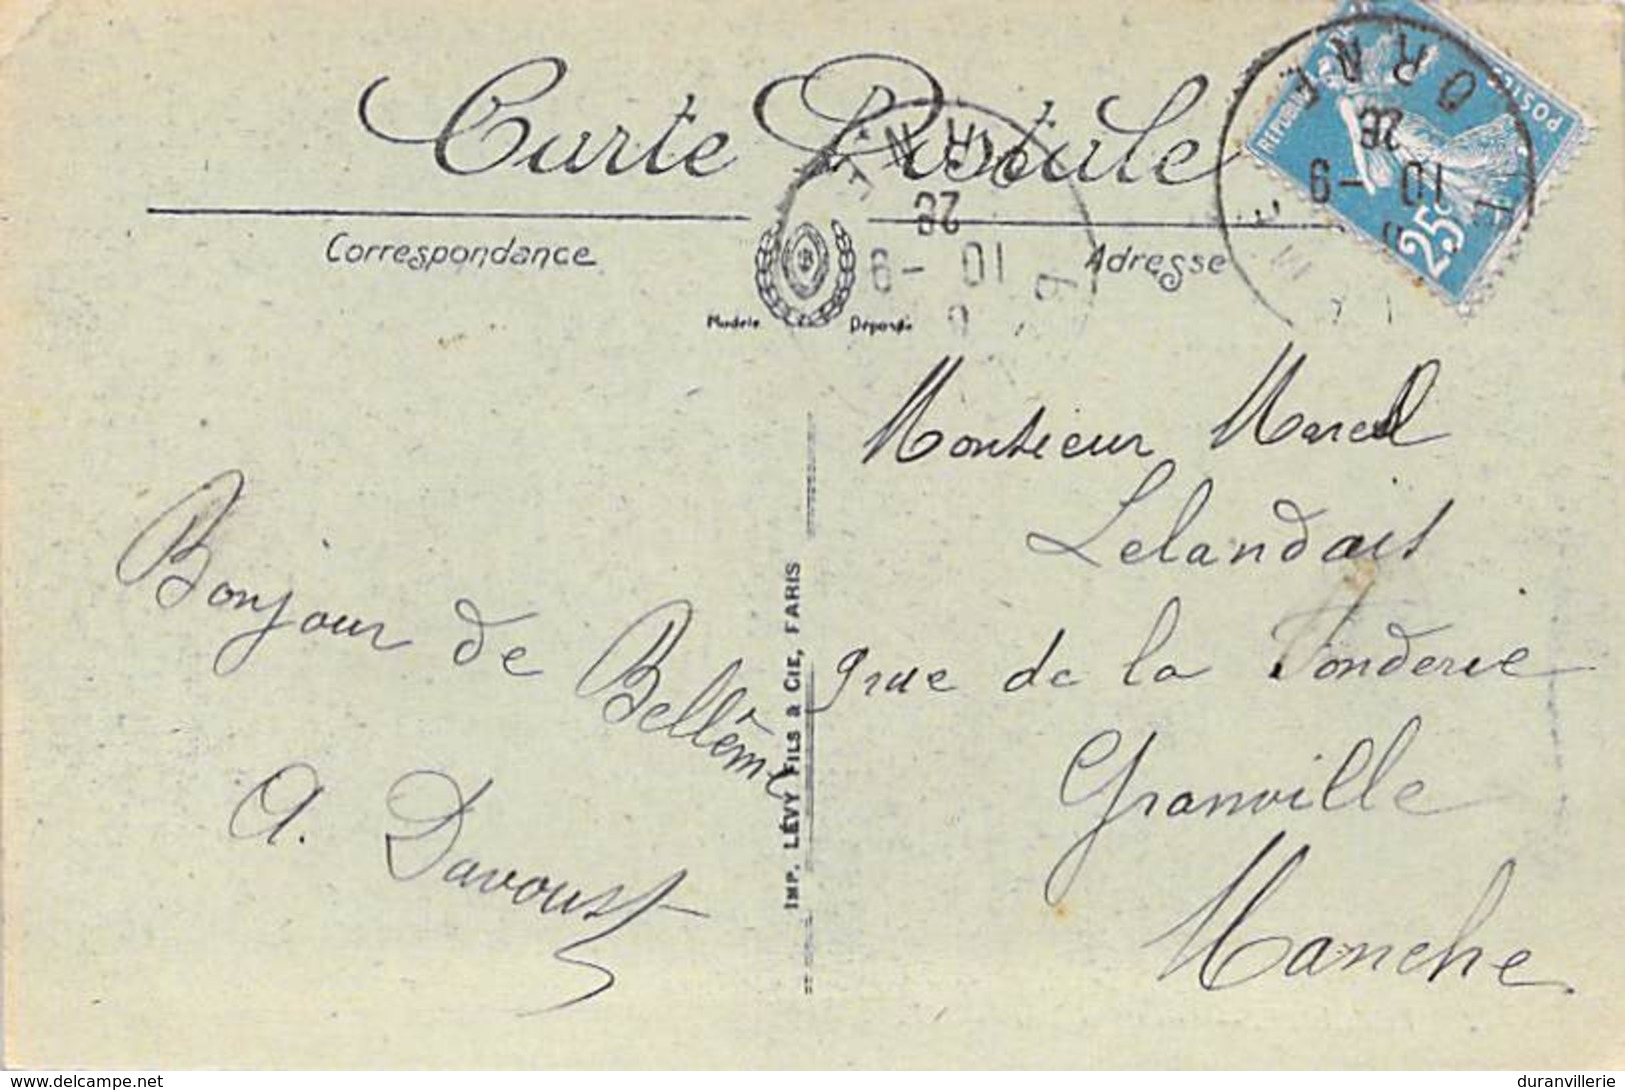 Carte Postale
Correspondance
Adresse
Modèle Déposé
Bonjour de Bellême
A. Davoust
IMP. LÉVY FILS & CIE, PARIS
Monsieur Marcel
Lelandais
9 rue de la Fonderie
Granville
Manche
ORNE
26
10 -9
ORNE
26
10 -9
POSTES
25c
www.delcampe.net
duranvillerie